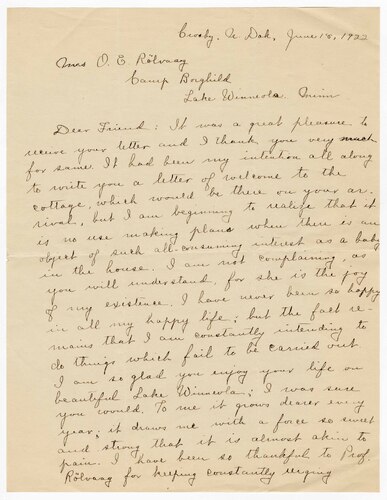 Crosby, N. Dak., June 18, 1922
Mrs O. E. Rölvaag
Camp Borghild
Lake Winneola. Minn
Dear Friend: It was a great pleasure to
receive your letter and I thank you very much
for same. It had been my intention all along
to write you a letter of welcome to the
cottage, which would be there on your ar-
rival, but I am beginning to realize that it
is no use making plans when there is an
object of such all-consuming interest as a baby
in the house. I am not complaining, as
you will understand, for she is the joy
of my existence. I have never been so happy
in all my happy life; but the fact re-
mains that I am constantly intending to
do things which fail to be carried out.
I am so glad you enjoy your life on
beautiful Lake Winneola; I was sure
you would. To me it grows dearer every
year; it draws me with a force so sweet
and strong that it is almost akin to
pain. I have been so thankful to Prof.
Rölvaag for keeping constantly urging